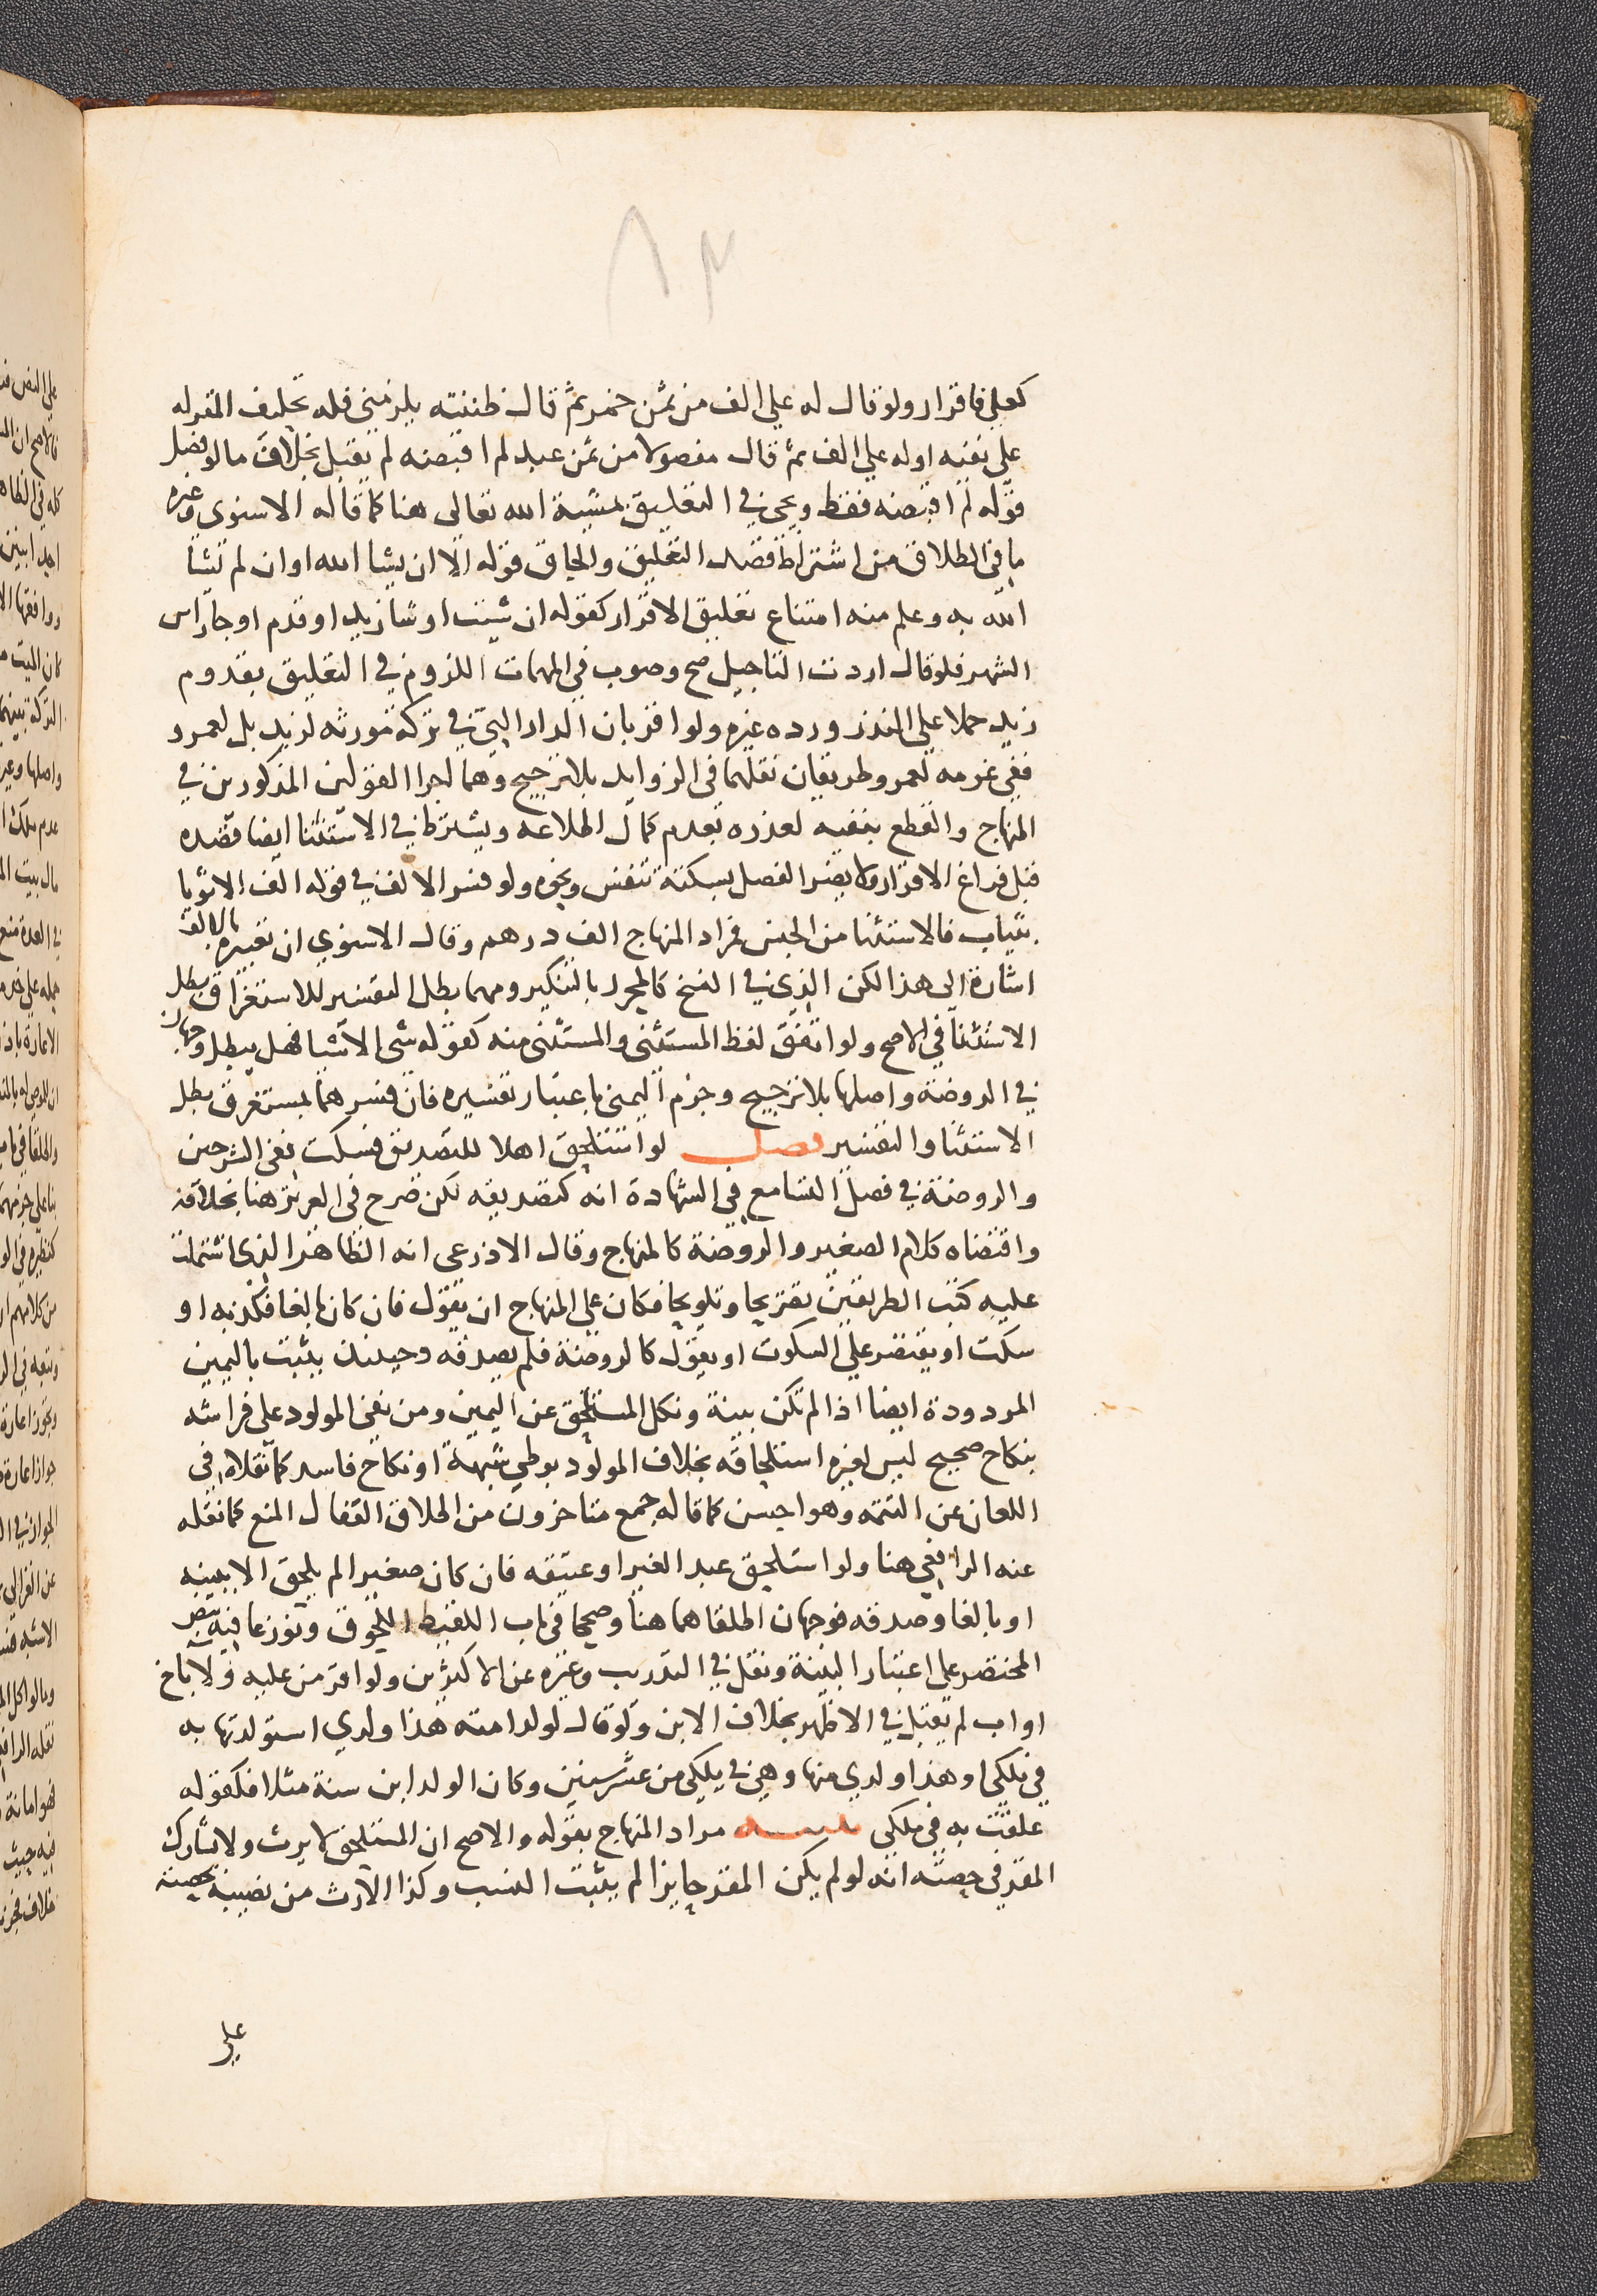 ٨٣
كعلي فاقرار ولو قال له علي الف من ثمن خمر ثم قال ظننته يلزمني فله تحليف المقر له
على نفيه او له علي الف ثم قال مفصولا من ثمن عبد لم اقبضه لم يقبل بخلاف ما لو فصل
قوله لم اقبضه فقط ويجي في التعليق بمشية الله تعالى هنا كما قاله الاسنوي وغيره
ما في الطلاق من اشتراط قصد التعليق والحاق قوله الا ان يشا الله او ان لم يشا
الله به وعلم منه امتناع تعليق الاقرار كقوله ان شيت او شا زيد او قدم او جا راس
الشهر فلو قال اردت التاجيل صح وصوب في المهمات اللزوم في التعليق بقدوم
زيد حملا على النذر ورده غيره ولو اقر بان الدار التي في تركة مورثه لزيد بل لعمرو
ففي غرمه لعمرو طريقان نقلهما في الزوايد بلا ترجيح وهما اجرا القولين المذكورين في
المنهاج والقطع بنفيه لعذره بعدم كمال اطلاعه ويشترط في الاستثنا ايضا قصده
قبل فراغ الاقرار ولا يضر الفصل بسكتة تنفس ونحوه ولو فسر الالف في قوله الف الا ثوبا
بثياب فالاستثنا من الجنس فمراد المنهاج الف درهم وقال الاسنوي ان تعبيره بالالف
اشارة الى هذا لكن الذي في النسخ كالمحرر بالتنكير ومهما بطل التفسير للاستغراق بطل
الاستثنا في الاصح ولو اتفق لفظ المستثنى والمستثنى منه كقوله شي الا شيا فهل يبطل وجهان
في الروضة واصلها بلا ترجيح وجزم اليمني باعتبار تفسيره فان فسرهما بمستغرق بطل
الاستثنا والتفسير فصل لو استلحق اهلا للتصديق فسكت ففي الشرحين
والروضة في فصل التسامع في الشهادة انه كتصديقه لكن صرح في العزيز هنا بخلافه
واقتضاه كلام الصغير والروضة كالمنهاج وقال الاذرعي انه الظاهر الذي اشتملت
عليه كتب الطريقين تصريحا وتلويحا فكان على المنهاج ان يقول فان كان بالغا فكذبه او
سكت او يقتصر على السكوت او يقول كالروضة فلم يصدقه وحينئذ يثبت باليمين
المردودة ايضا اذا لم تكن بينة ونكل المستلحق عن اليمين ومن نفي المولود على فراشه
بنكاح صحيح ليس لغيره استلحاقه بخلاف المولود بوطي شبهة او نكاح فاسد كما نقلاه في
اللعان عن التتمة وهو احسن كما قاله جمع متاخرون من اطلاق القفال المنع كما نقله
عنه الرافعي هنا ولو استلحق عبد الغير او عتيقه فان كان صغيرا لم يلحق الا ببينه
او بالغا وصدقه فوجهان اطلقاهما هنا وصححا في باب اللقيط اللحوق ونوزعا فيه بنص
المختصر على اعتبار البينة ونقل في التدريب وغيره عن الاكثرين ولو اقر من عليه ولا باخ
او اب لم يقبل في الاظهر بخلاف الابن ولو قال لولد امته هذا ولدي استولدتها به
في ملكي او هذا ولدي منها وهي في ملكي من عشر سنين وكان الولد ابن سنة مثلا فكقوله
علقت به في ملكي تنبيه مراد المنهاج بقوله والاصح ان المستلحق لا يرث ولا يشارك
المقر في حصته انه لو لم يكن المقر حايزا لم يثبت النسب وكذا الارث من نصيبه بحصته
على